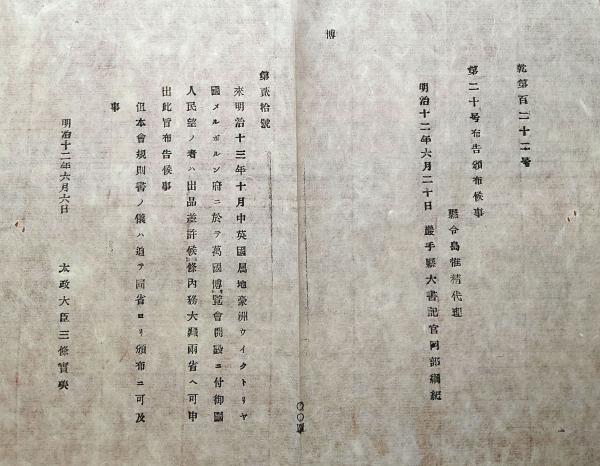 乾第百二十二号
第二十号布告頒布候事
縣令島惟精代理
明治十二年六月二十日 巖手縣大書記官岡部綱紀
博
第貳拾號
來明治十三年十月中英國属地豪洲ウイクトリヤ
國メルボルン府ニ於テ萬國博覽會開設ニ付御國
人民望ノ者ハ出品差許候條内務大藏兩省ヘ可申
出此旨布告候事
但本會規則書ノ儀ハ追テ同省ヨリ頒布ニ可及
事
明治十二年六月六日
太政大臣三條實美